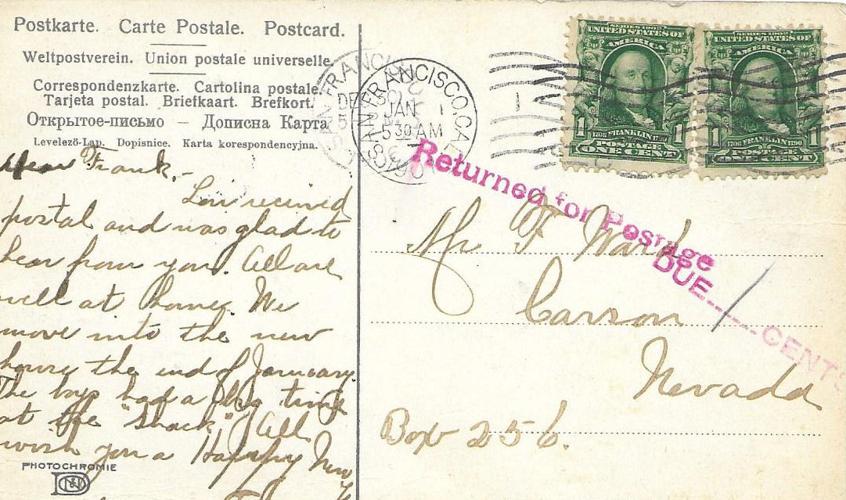 Postkarte. Carte Postale. Postcard.
Weltpostverein. Union postale universelle.
Correspondenzkarte. Cartolina postale.
Tarjeta postal. Briefkaart. Brefkort.
Открытое-письмо – Дописна Карта
Levelező-Lap. Dopisnice. Karta korespondencyjna.
SERIES 1902
UNITED STATES OF
AMERICA
1706 FRANKLIN 1790
1 POSTAGE 1
ONE CENT
SERIES 1902
UNITED STATES OF
AMERICA
1706 FRANKLIN 1790
1 POSTAGE 1
ONE CENT
SAN FRANCISCO, CAL.
JAN 1
5 30 AM
Returned for Postage
DUE 1 CENTS
Dear Frank,-
received
postal and was glad to
hear from you. All are
well at home. We
move into the new
house the end of January.
The boys had a big time
at the "Shack". All
wish you a Happy New
Mr F Ward
Carson
Nevada
Box 256.
PHOTOCHROMIE